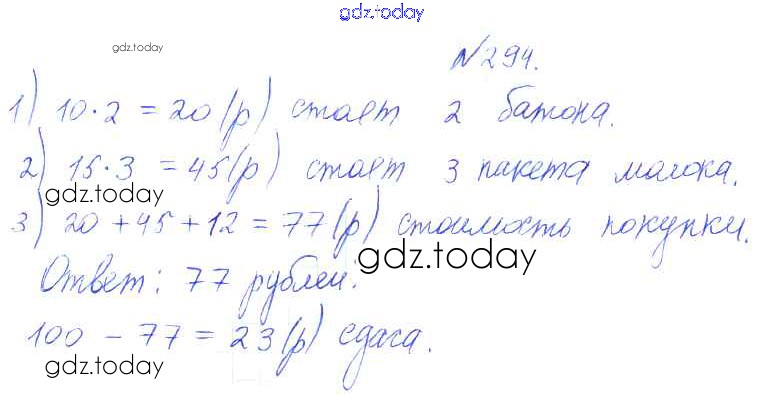 gdz.today
gdz.today
№294.
1) 10·2 = 20 (р) стоет 2 батона.
2) 15·3 = 45 (р) стоет 3 пакета молока.
gdz.today
3) 20 + 45 + 12 = 77 (р) стоимость покупки.
gdz.today
Ответ: 77 рублей.
100 - 77 = 23 (р) сдача.
gdz.today